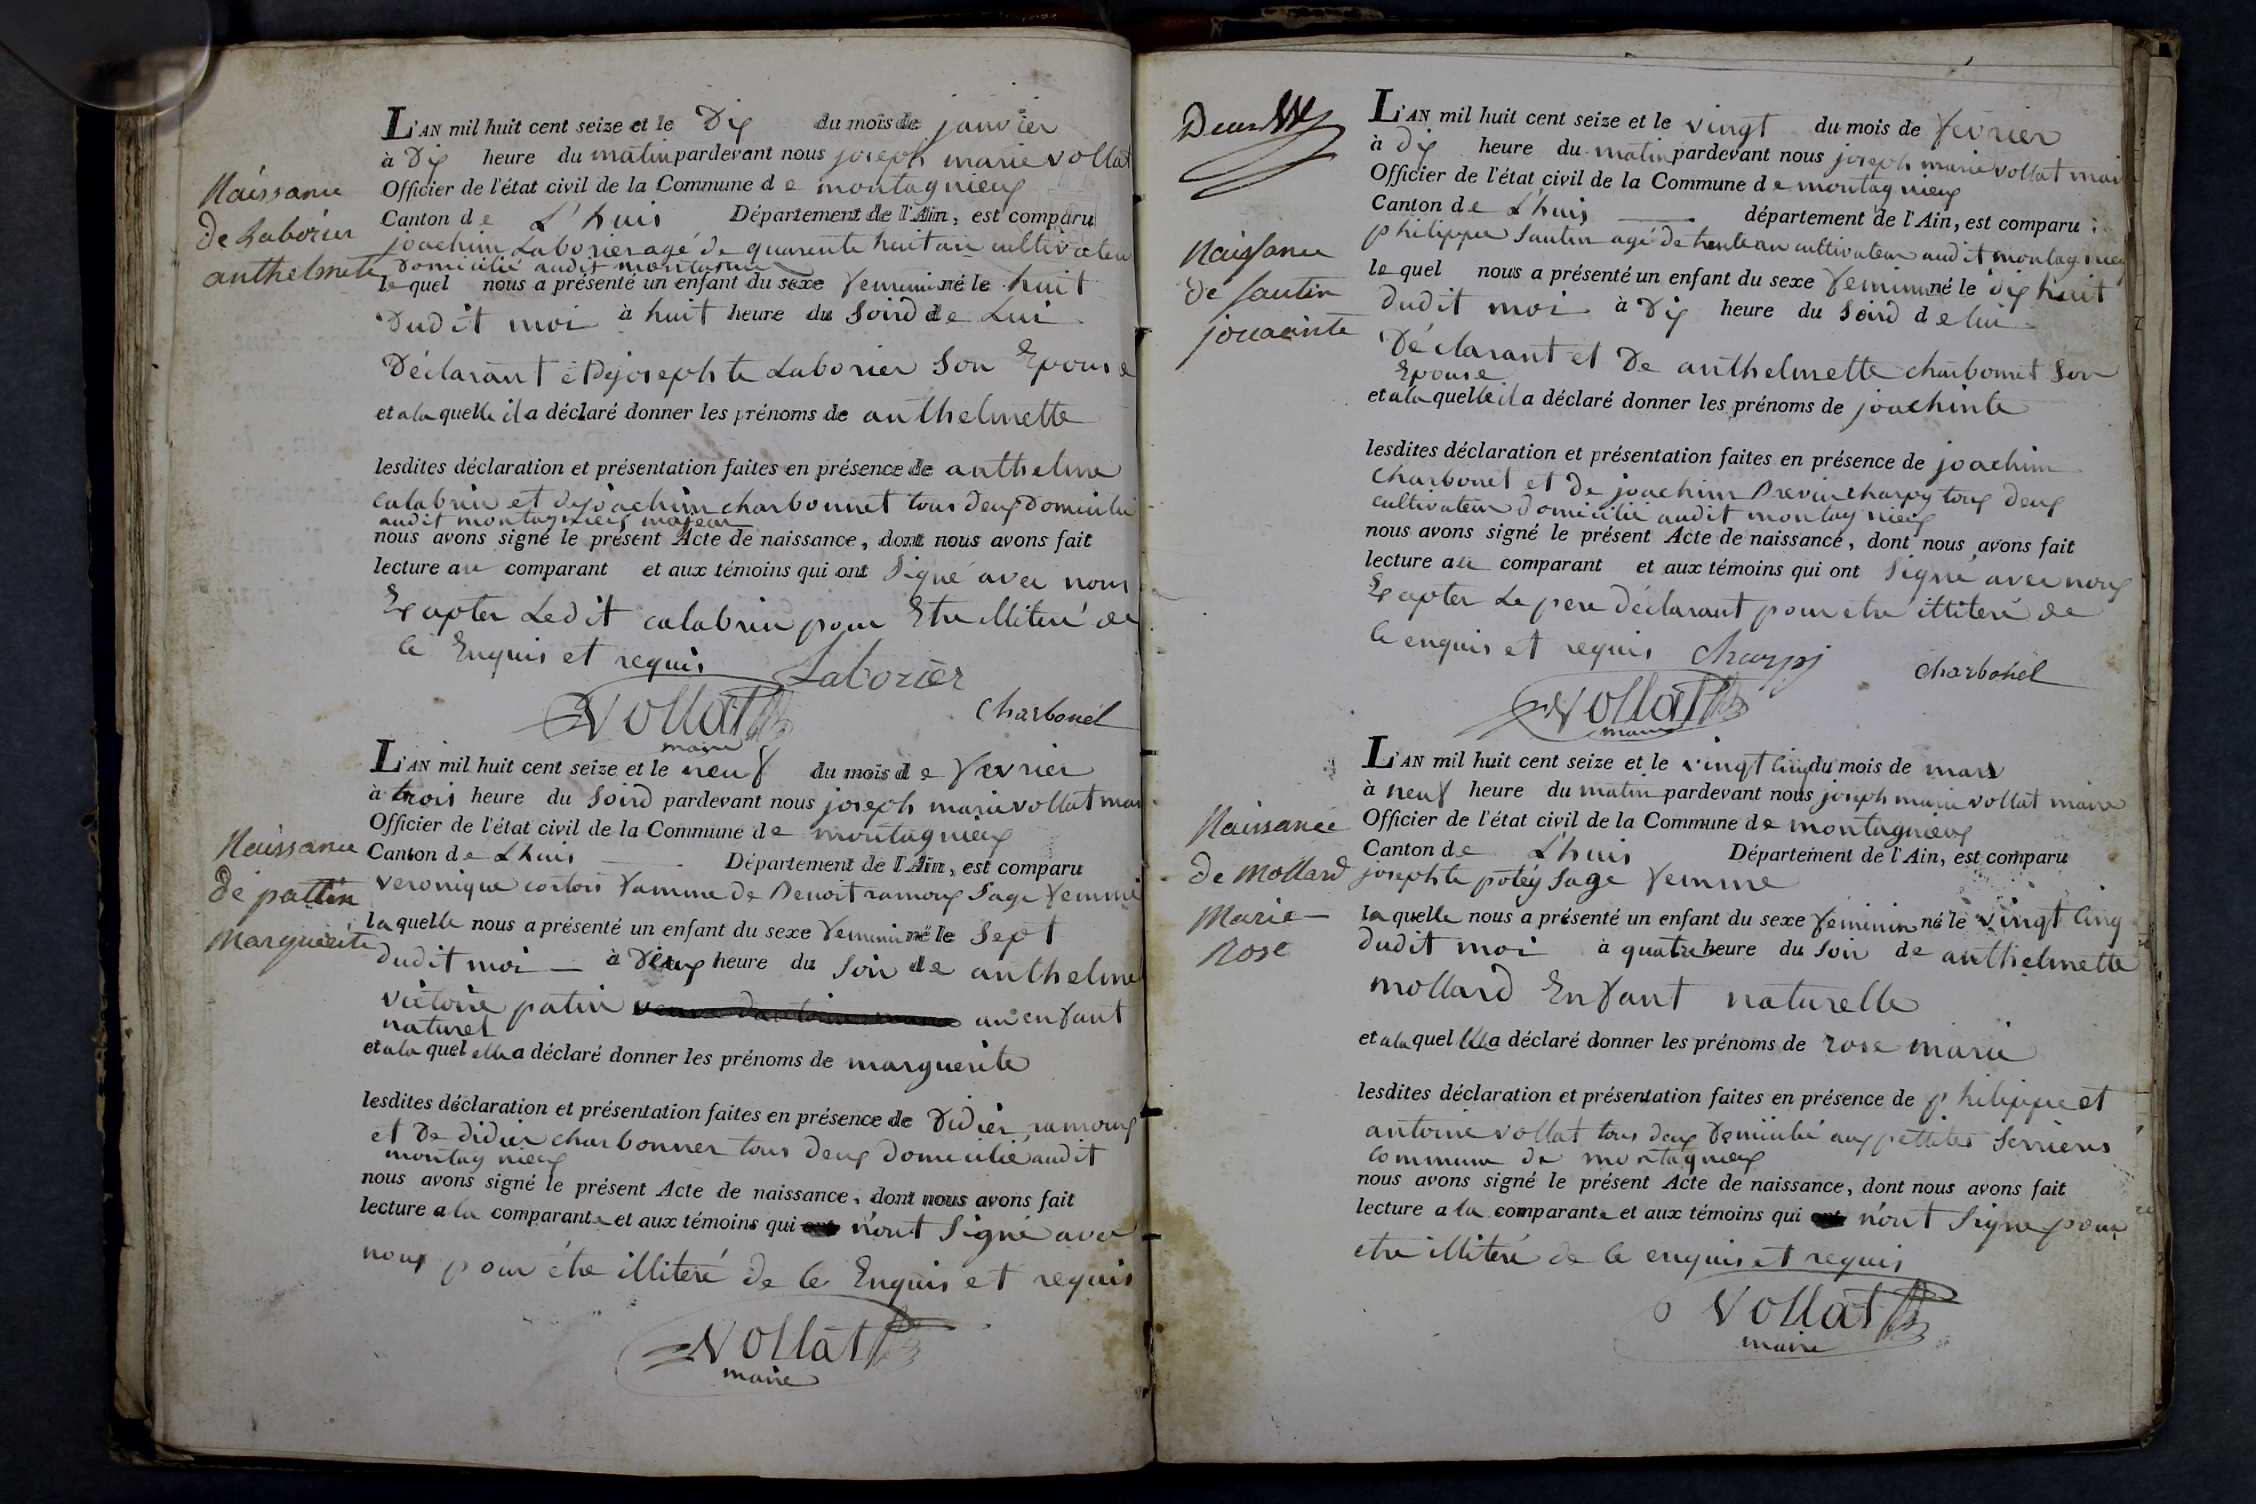 Naissance
de Laborier
anthelmete
L'AN mil huit cent seize et le Dix du mois de janvier
à Dix heure du matin pardevant nous joseph marie vollat
Officier de l'état civil de la Commune de montagnieux
Canton de L'huis Département de l'Ain, est comparu
joachim Laborier agé de quarente huit an cultivateur
domicilié audit montagnieux
lequel nous a présenté un enfant du sexe feminin né le huit
dudit moi à huit heure du Soird de Lui
Déclarant et De josephte Laborier Son Epouse
et a la quelle il a déclaré donner les prénoms de anthelmette
lesdites déclaration et présentation faites en présence de anthelme
calabrin et de joachim charbonnet tous deux Domicilié
audit montagnieux majeur
nous avons signé le présent Acte de naissance, dont nous avons fait
lecture au comparant et aux témoins qui ont Signé avec nous
Exapter Ledit calabrin pour Etre illiteré de
ce Enquis et requis Laborier
Vollat Charbonel
maire
Naissance
de pattin
Marguerite
L'AN mil huit cent seize et le neuf du mois de fevrier
à trois heure du Soird pardevant nous joseph marie vollat mai
Officier de l'état civil de la Commune de montagnieux
Canton de Lhuis Département de l'Ain, est comparu
veronique cortois famme de Benoit ramoux Sage femme
laquelle nous a présenté un enfant du sexe feminin né le Sept
dudit moi à Deux heure du Soir de anthelme
victoire patin un enfant
naturel
et a la quel elle a déclaré donner les prénoms de marguerite
lesdites déclaration et présentation faites en présence de didier ramoux
et De didier charbonner tous deux domicilié audit
montagnieux
nous avons signé le présent Acte de naissance, dont nous avons fait
lecture a la comparante et aux témoins qui n'ont Signé avec
nous pour être illiteré de ce Enquis et requis
Vollat
maire
Deux
Naissance
de Sautin
jouacinte
L'AN mil huit cent seize et le vingt du mois de fevrier
à dix heure du matin pardevant nous joseph marie vollat mai
Officier de l'état civil de la Commune de montagnieux
Canton de L'huis département de l'Ain, est comparu :
philippe Sautin agé de trente an cultivateur audit montagnieu
lequel nous a présenté un enfant du sexe feminin né le dix huit
dudit moi à Dix heure du Soird de lui
Déclarant et De anthelmette charbonnet Son
Epouse
et a la quelle il a déclaré donner les prénoms de joachinte
lesdites déclaration et présentation faites en présence de joachim
Charbonet et De joachim charpy tous deux
cultivateur domicilié audit montagnieux
nous avons signé le présent Acte de naissance, dont nous avons fait
lecture au comparant et aux témoins qui ont Signé avec nous
Exapter Le pere déclarant pour etre illiteré de
ce enquis et requis charpy charbonel
Vollat
maire
Naissance
de Mollard
Marie
Rose
L'AN mil huit cent seize et le vingt cinq du mois de mars
à neuf heure du matin pardevant nous joseph marie vollat maire
Officier de l'état civil de la Commune de montagnieux
Canton de L'huis Département de l'Ain, est comparu
josephte potey Sage femme
laquelle nous a présenté un enfant du sexe féminin né le vingt cinq
dudit moi à quatre heure du Soir de anthelmette
mollard Enfant naturelle
et a la quel elle a déclaré donner les prénoms de rose marie
lesdites déclaration et présentation faites en présence de philippe et
antoine vollat tous deux domicilié aux pettites Serrieres
commune de montagnieux
nous avons signé le présent Acte de naissance, dont nous avons fait
lecture a la comparante et aux témoins qui n'ont Signe pour
etre illiteré de ce enquis et requis
Vollat
maire